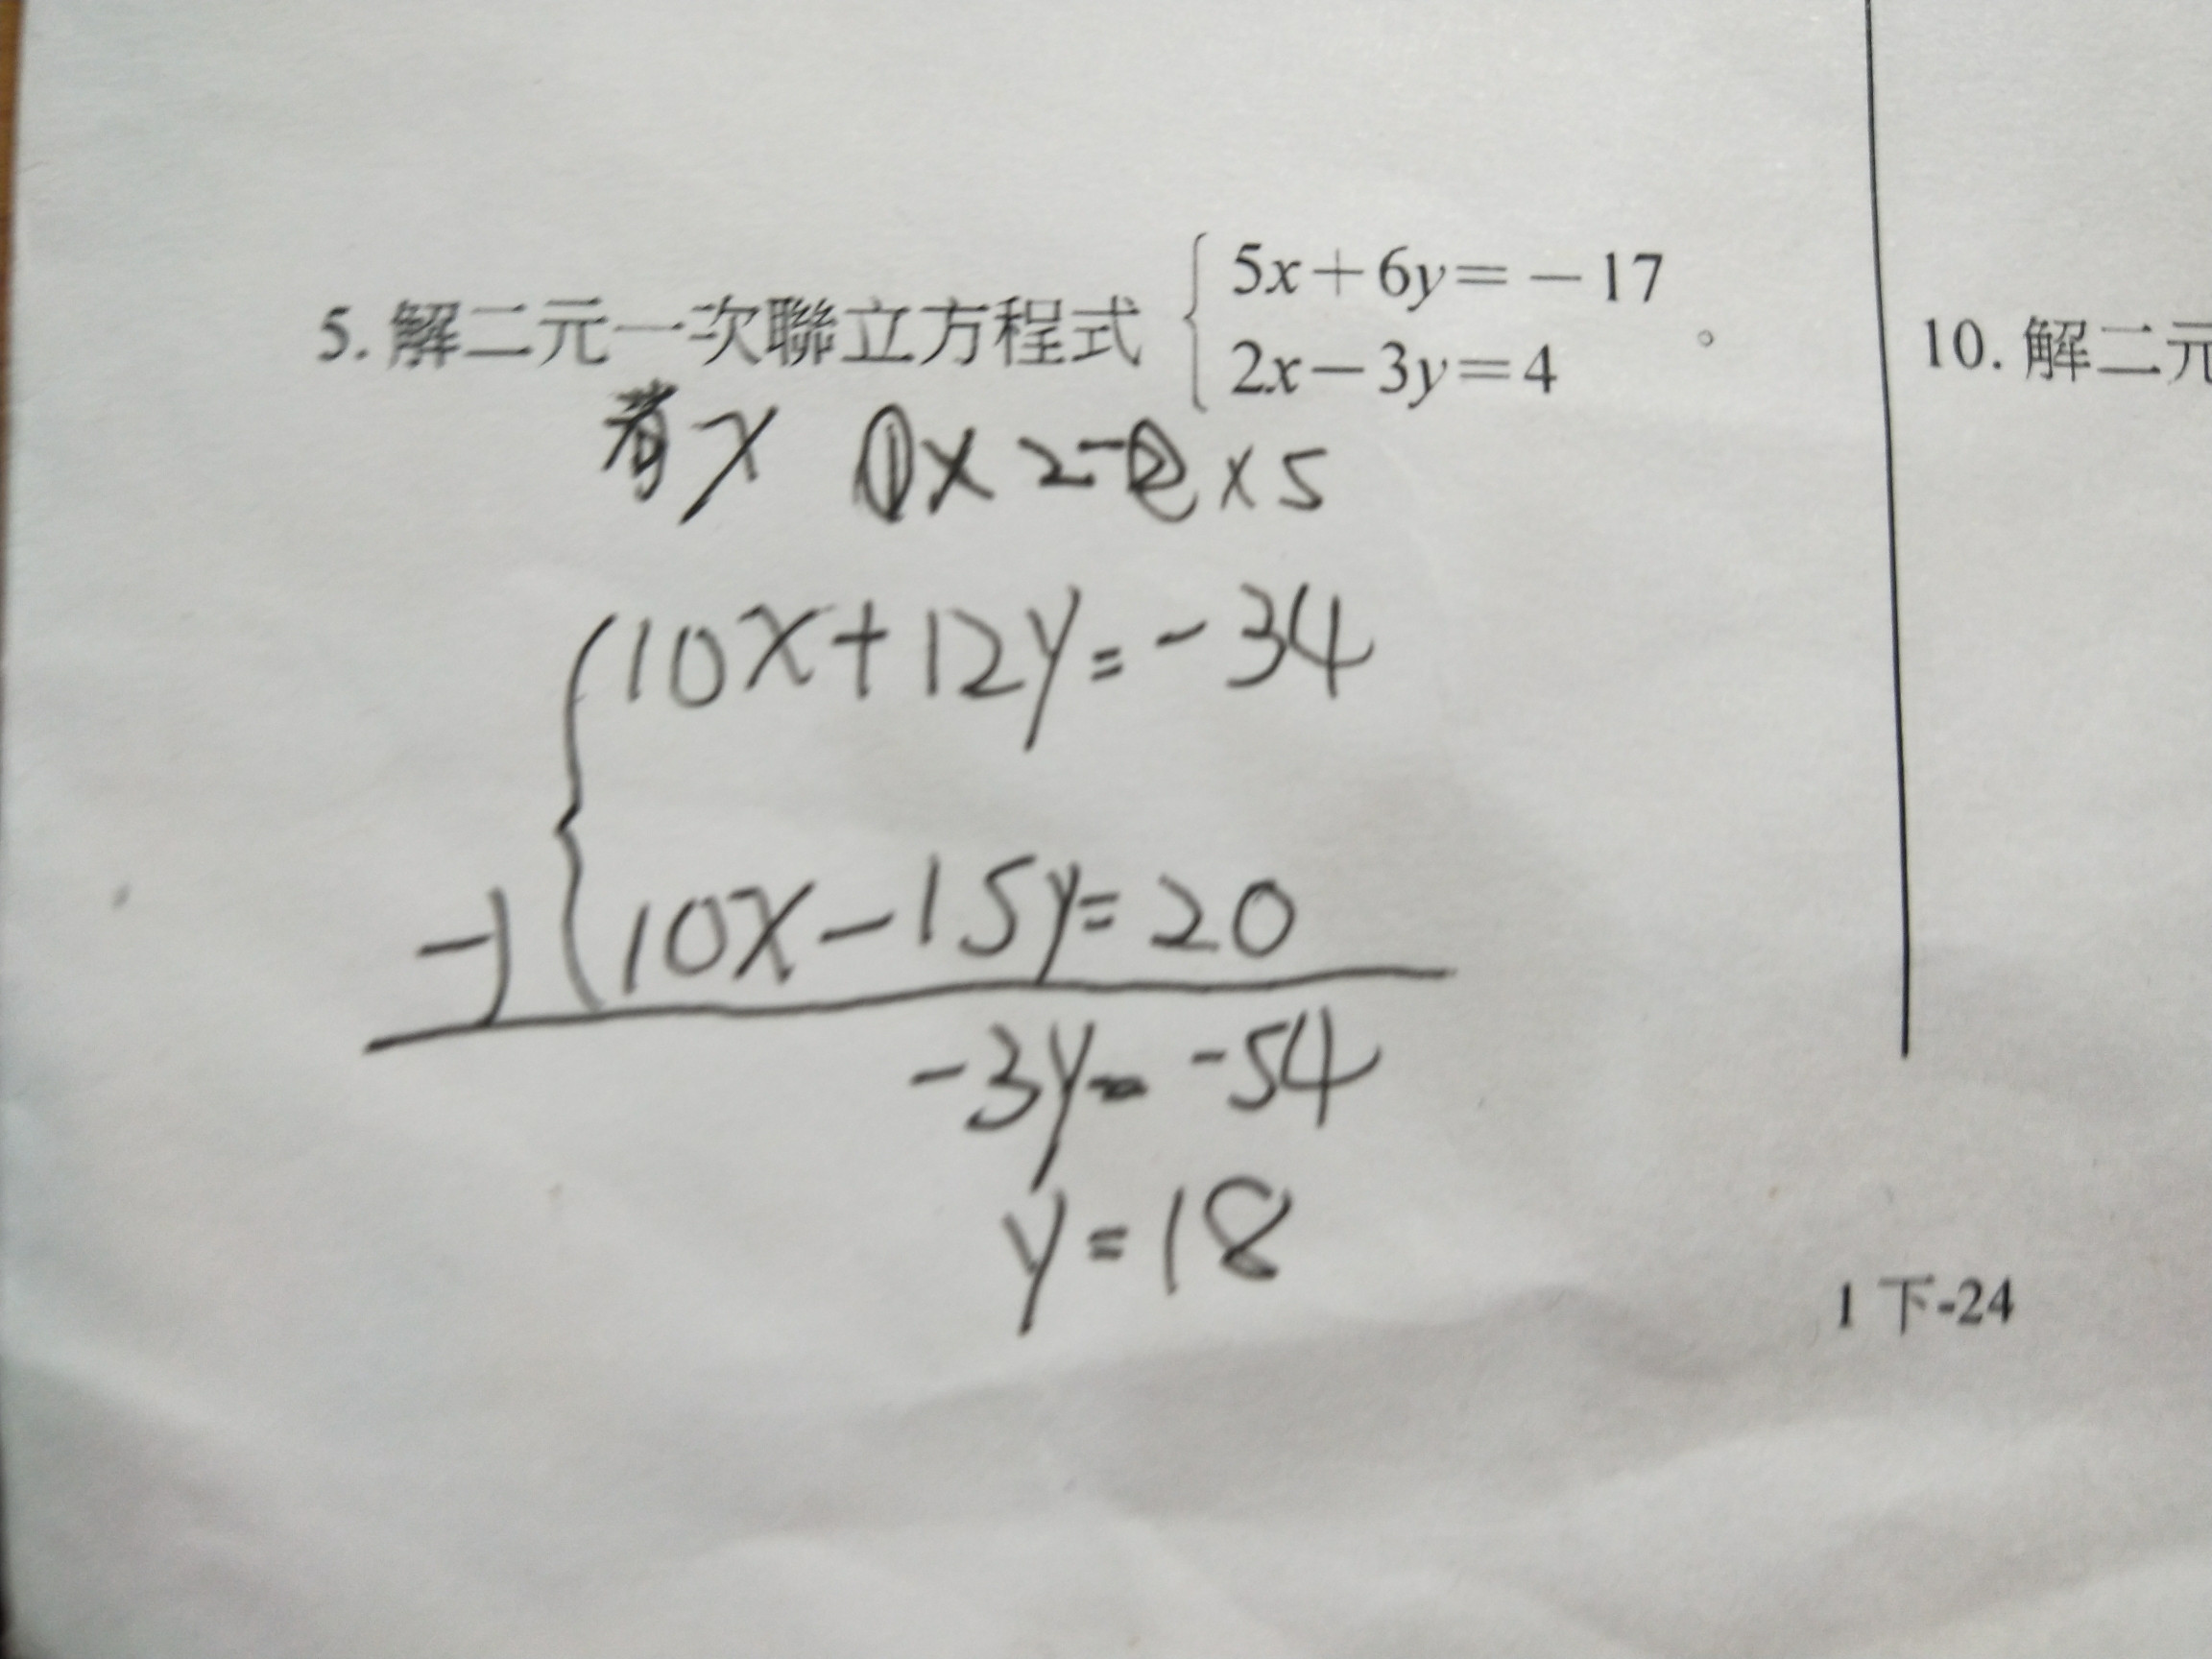 5. 解二元一次聯立方程式 { 5x+6y=-17
2x-3y=4 。
x ①×2-②×5
{ 10x+12y=-34
-) 10x-15y=20
-3y=-54
y=18
10. 解二元
1下-24